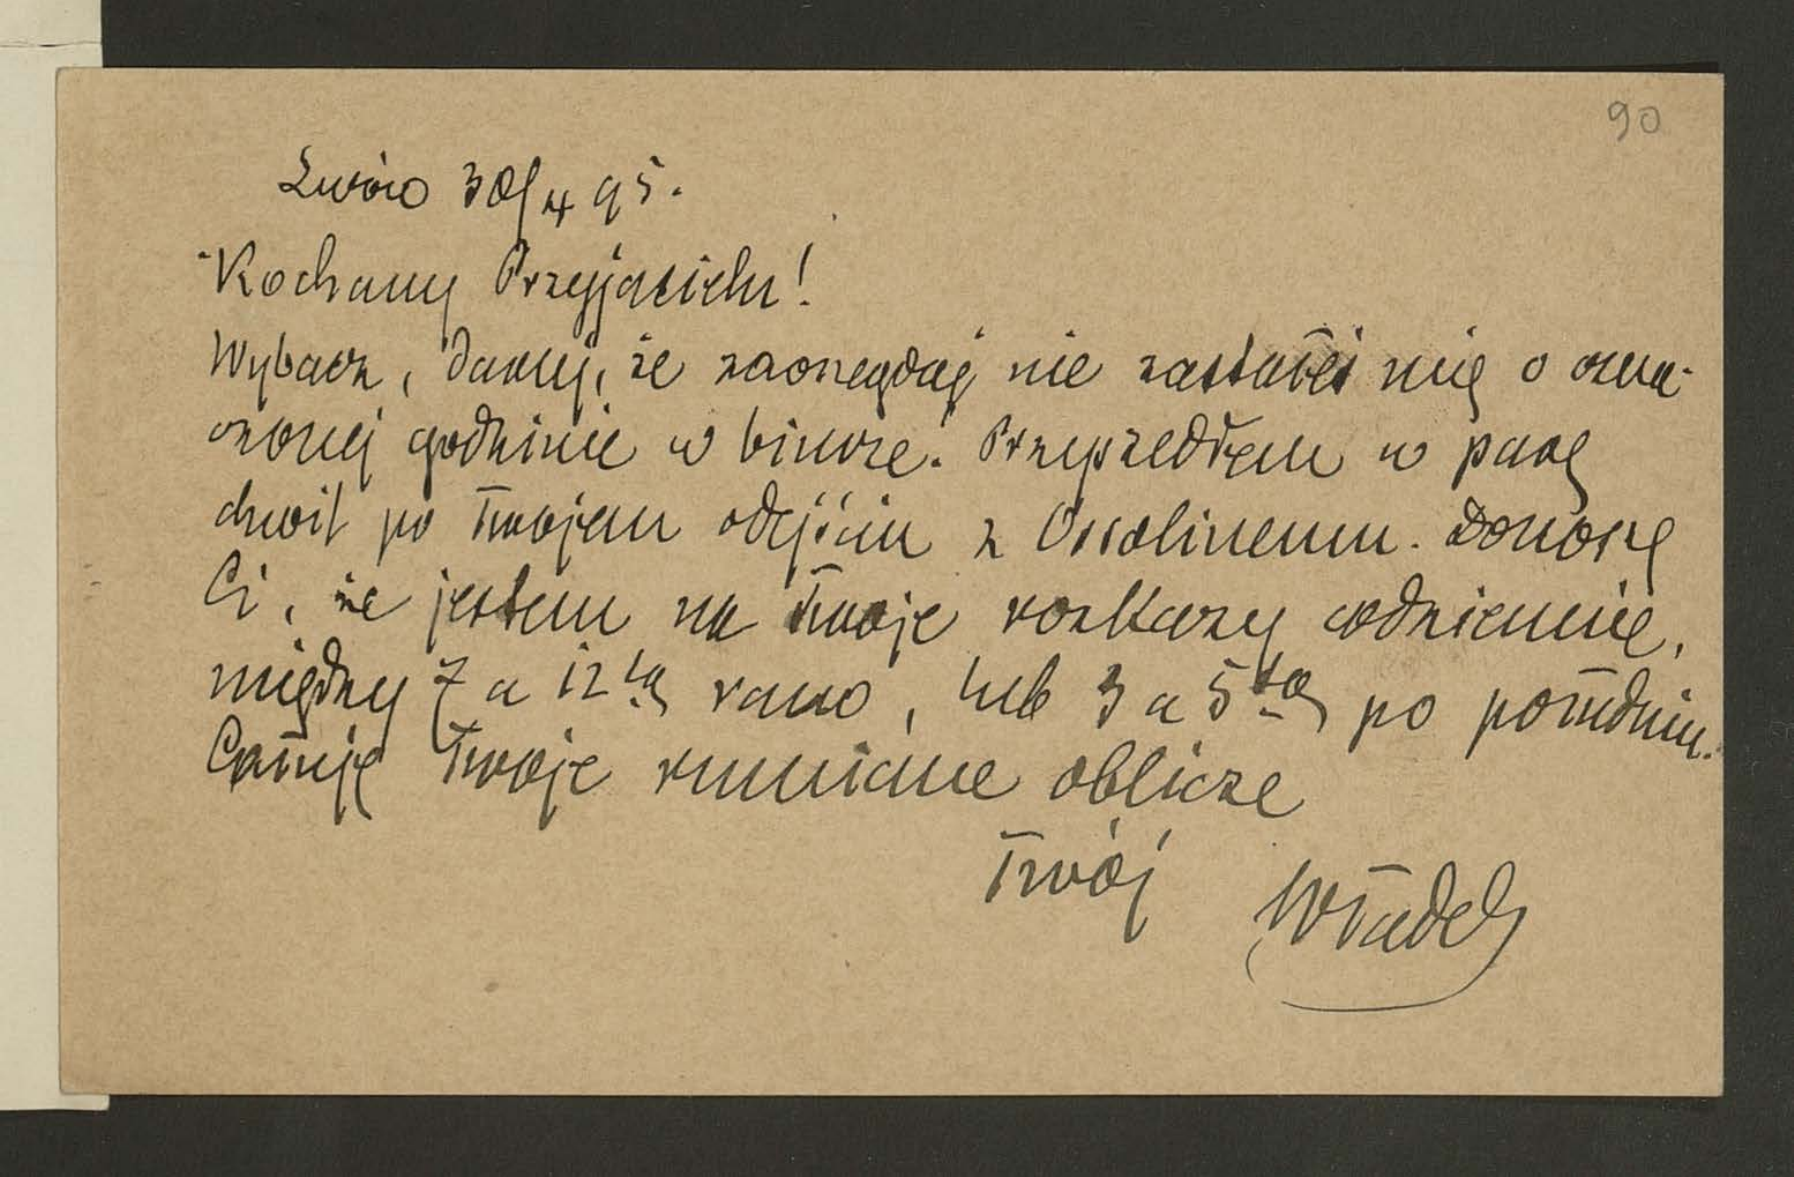 90
Lwów 30/4 95.
Kochany Przyjacielu!
Wybacz, że zaonegdaj nie zastałeś mię o ozna-
czonej godzinie w biurze. Przyszedłem w parę
chwil po Twojem odejściu z Ossolineum. Donoszę
Ci, że jestem na Twoje rozkazy codziennie,
między 7 a 12tą rano, lub 3 a 5tą po południu.
Całuję Twoje rumiane oblicze
Twój Władek